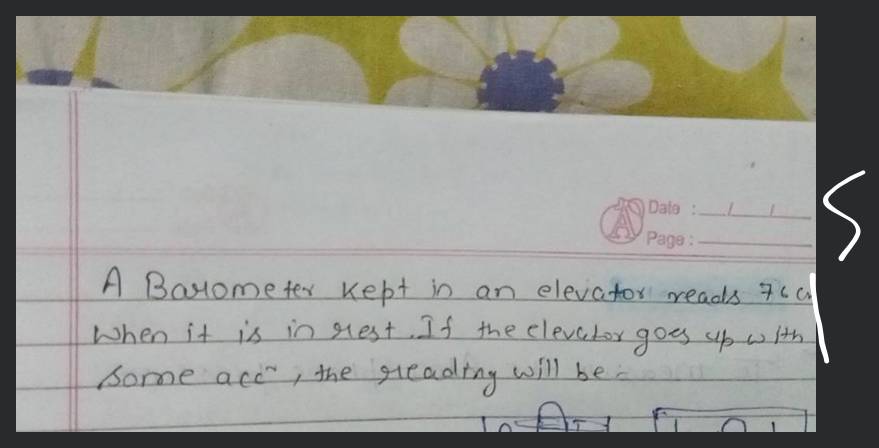 Date : / /
Page :
A Barometer kept in an elevator reads 76 c
When it is in rest. If the elevator goes up with
some accⁿ, the reading will be -